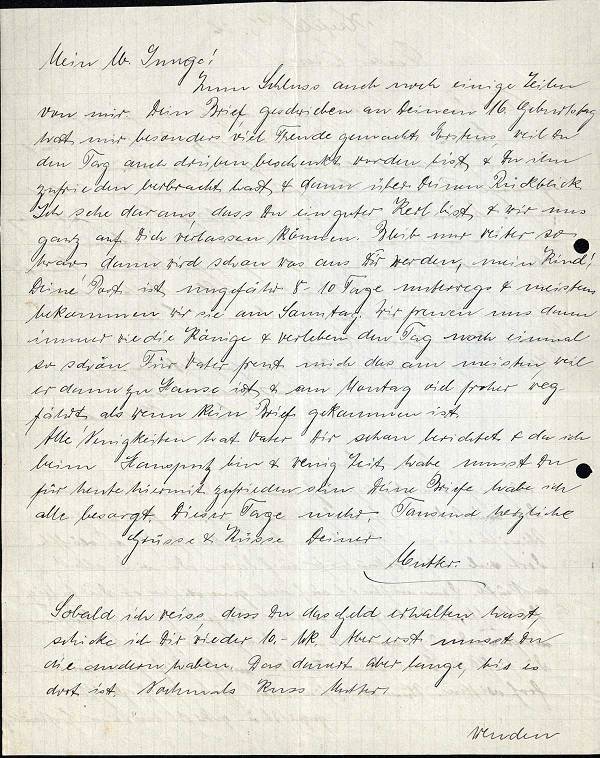 Mein lb. Junge!
Zum Schluss auch noch einige Zeilen
von mir. Dein Brief geschrieben an Deinem 16. Geburtstag
hat mir besonders viel Freude gemacht. Erstens, weil Du
den Tag auch drüben beschenkt worden bist & Du ihn
zufrieden verbracht hast & dann über Deinen Rückblick
Ich sehe daraus dass Du ein guter Kerl bist, & wir uns
ganz auf Dich verlassen können. Bleib nur weiter so
brav dann wird schon was aus Dir werden, mein Kind!
Deine Post ist ungefähr 8-10 Tage unterwegs & meistens
bekommen wir sie am Sonntag. Wir freuen uns dann
immer wie die Könige & verleben den Tag noch einmal
so schön. Für Vater freut mich das am meisten weil
er dann zu Hause ist & am Montag viel froher weg-
fährt als wenn kein Brief gekommen ist.
Alle Neuigkeiten hat Vater Dir schon berichtet & da ich
beim Hausputz bin & wenig Zeit habe musst Du
für heute hiermit zufrieden sein. Deine Briefe habe ich
alle besorgt. Dieser Tage mehr. Tausend herzliche
Grüsse & Küsse Deiner
Mutter.
Sobald ich weiss, dass Du das Geld erhalten hast,
schicke ich Dir wieder 10.- Mk. Aber erst musst Du
die andern haben. Das dauert aber lange, bis es
dort ist. Nochmals Kuss Mutter.
wenden